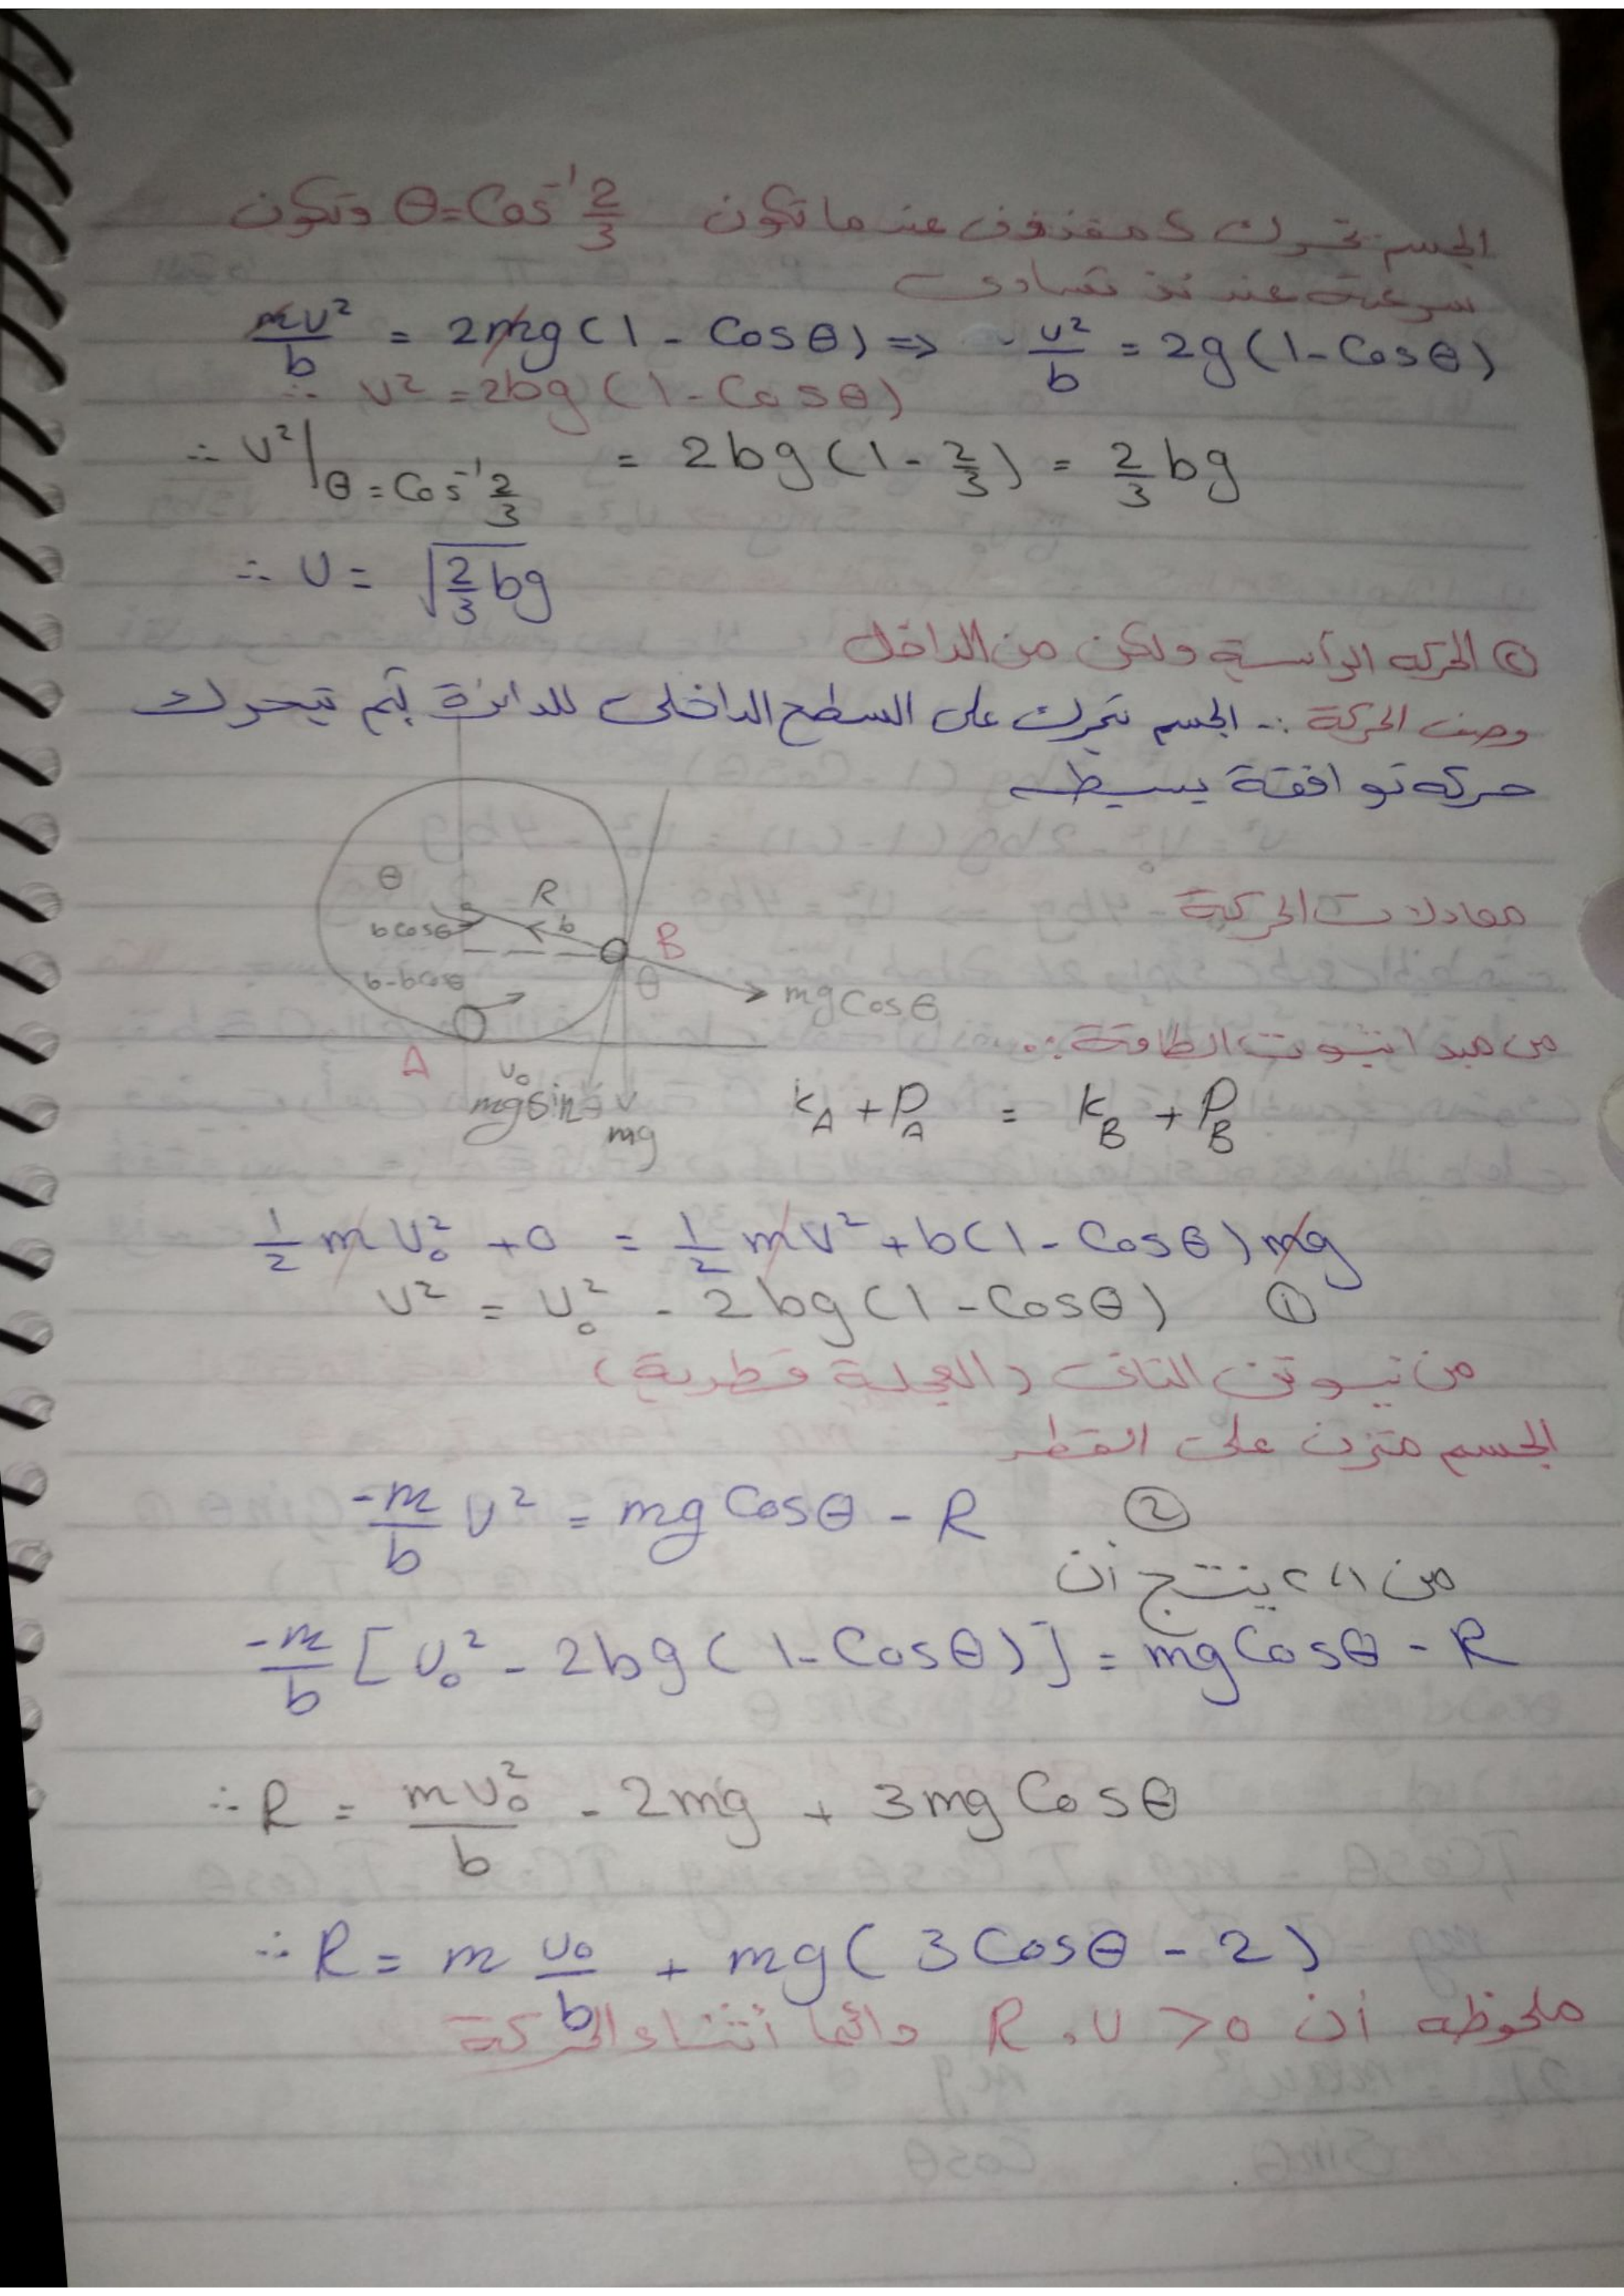 الجسم تحرك كمقذوف عند ما تكون θ = Cos⁻¹ 2/3 وتكون
سرعته عند ئذ تساوى
mv²/b = 2mg(1 - Cosθ) ⇒ v²/b = 2g(1-Cosθ)
∴ v² = 2bg(1-Cosθ)
∴ v²|θ=Cos⁻¹ 2/3 = 2bg(1-2/3) = 2/3 bg
∴ v = √(2/3 bg)
② الحركه الرأسية ولكن من الداخل
وصف الحركة :- الجسم تحرك على السطح الداخلى للدائرة ثم تيحرك
حركه توافقة بسيطه
θ
R
bcosθ
b
B
b-bcosθ
θ
mgCosθ
A
v₀
mgsinθ
mg
معادلات الحركة
من مبدا ثبوت الطاقة :.
K_A + P_A = K_B + P_B
1/2 mv₀² + 0 = 1/2 mv² + b(1 - Cosθ)mg
v² = v₀² - 2bg(1-Cosθ) ①
من نيوتن الثانى (العجلة قطرية)
الجسم متزن على القطر
-m/b v² = mgCosθ - R ②
من ١،٢ ينتج أن
-m/b [v₀² - 2bg(1-Cosθ)] = mgCosθ - R
∴ R = mv₀²/b - 2mg + 3mgCosθ
∴ R = m v₀/b + mg(3Cosθ - 2)
ملحوظه أن R, v > 0 دائما أثناء الحركة